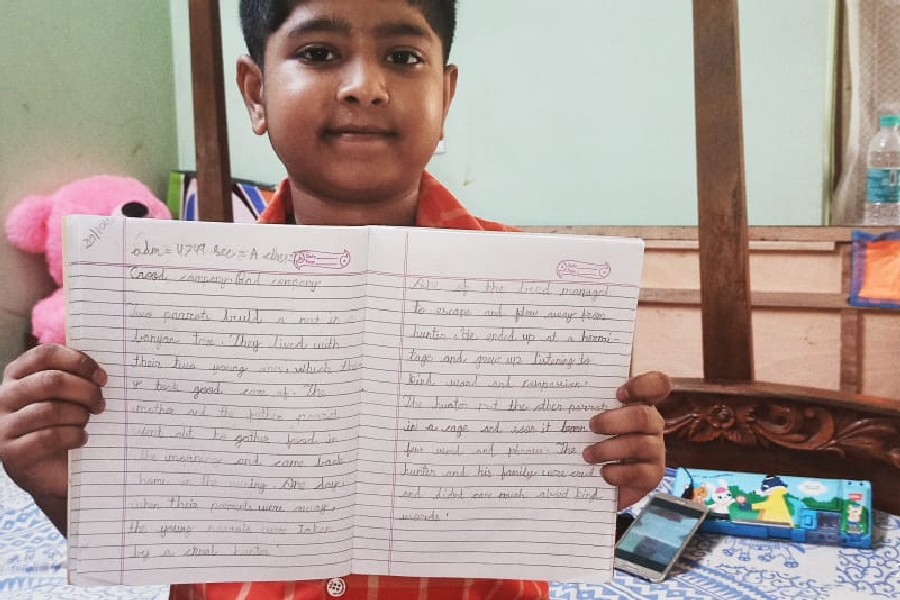 adm = 4749 sec = A class:
Good company Bad company
Two parrots build a nest in a
banyan tree. They lived with
their two young ones which they
took good care of. The
mother and the father parrot
went out to gather food in
the morning and came back
home in the evening. One day
when their parents were away,
the young parrots were taken
by a cruel hunter
One of the bird managed
to escape and flew away from
hunter. He ended up at a hermi-
tage and grew up listening to
kind word and compassion.
The hunter put the other parrot
in a cage and soon it learn
few word and phrases. The
hunter and his family were cruel
and didnt care much about kind
words.